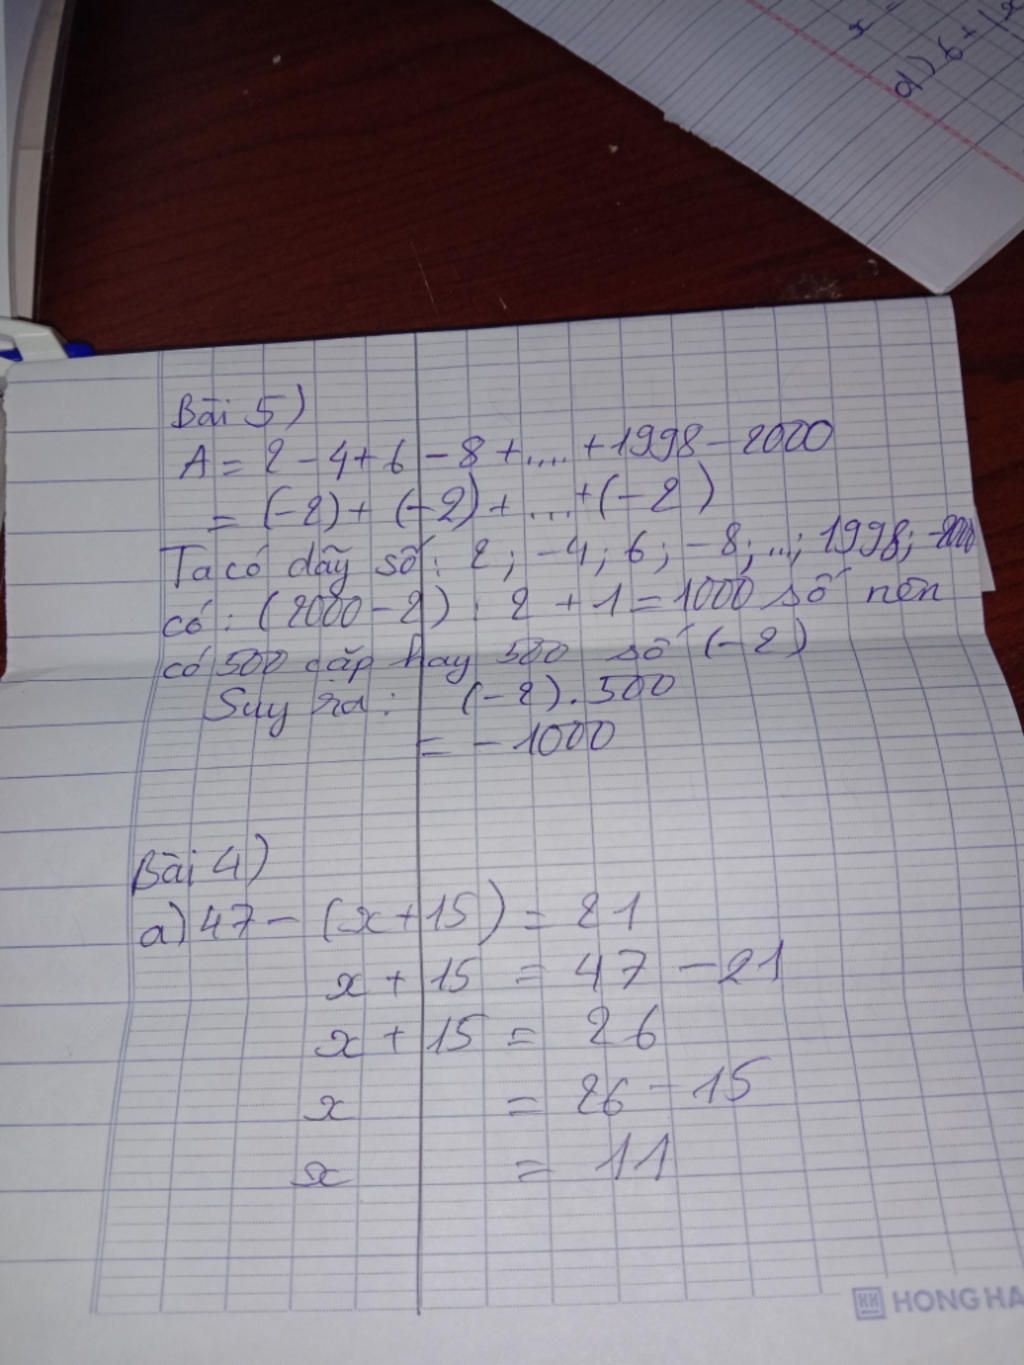 x =
d) 6 + |x
Bài 5)
A = 2 - 4 + 6 - 8 + .... + 1998 - 2000
= (-2) + (-2) + ... + (-2)
Ta có dãy số: 2; -4; 6; -8; ...; 1998; -2000
có: (2000 - 2) : 2 + 1 = 1000 số nên
có 500 cặp hay 500 số (-2)
Suy ra: (-2). 500
= - 1000
Bài 4)
a) 47 - (x + 15) = 21
x + 15 = 47 - 21
x + 15 = 26
x = 26 - 15
x = 11
HONG HA